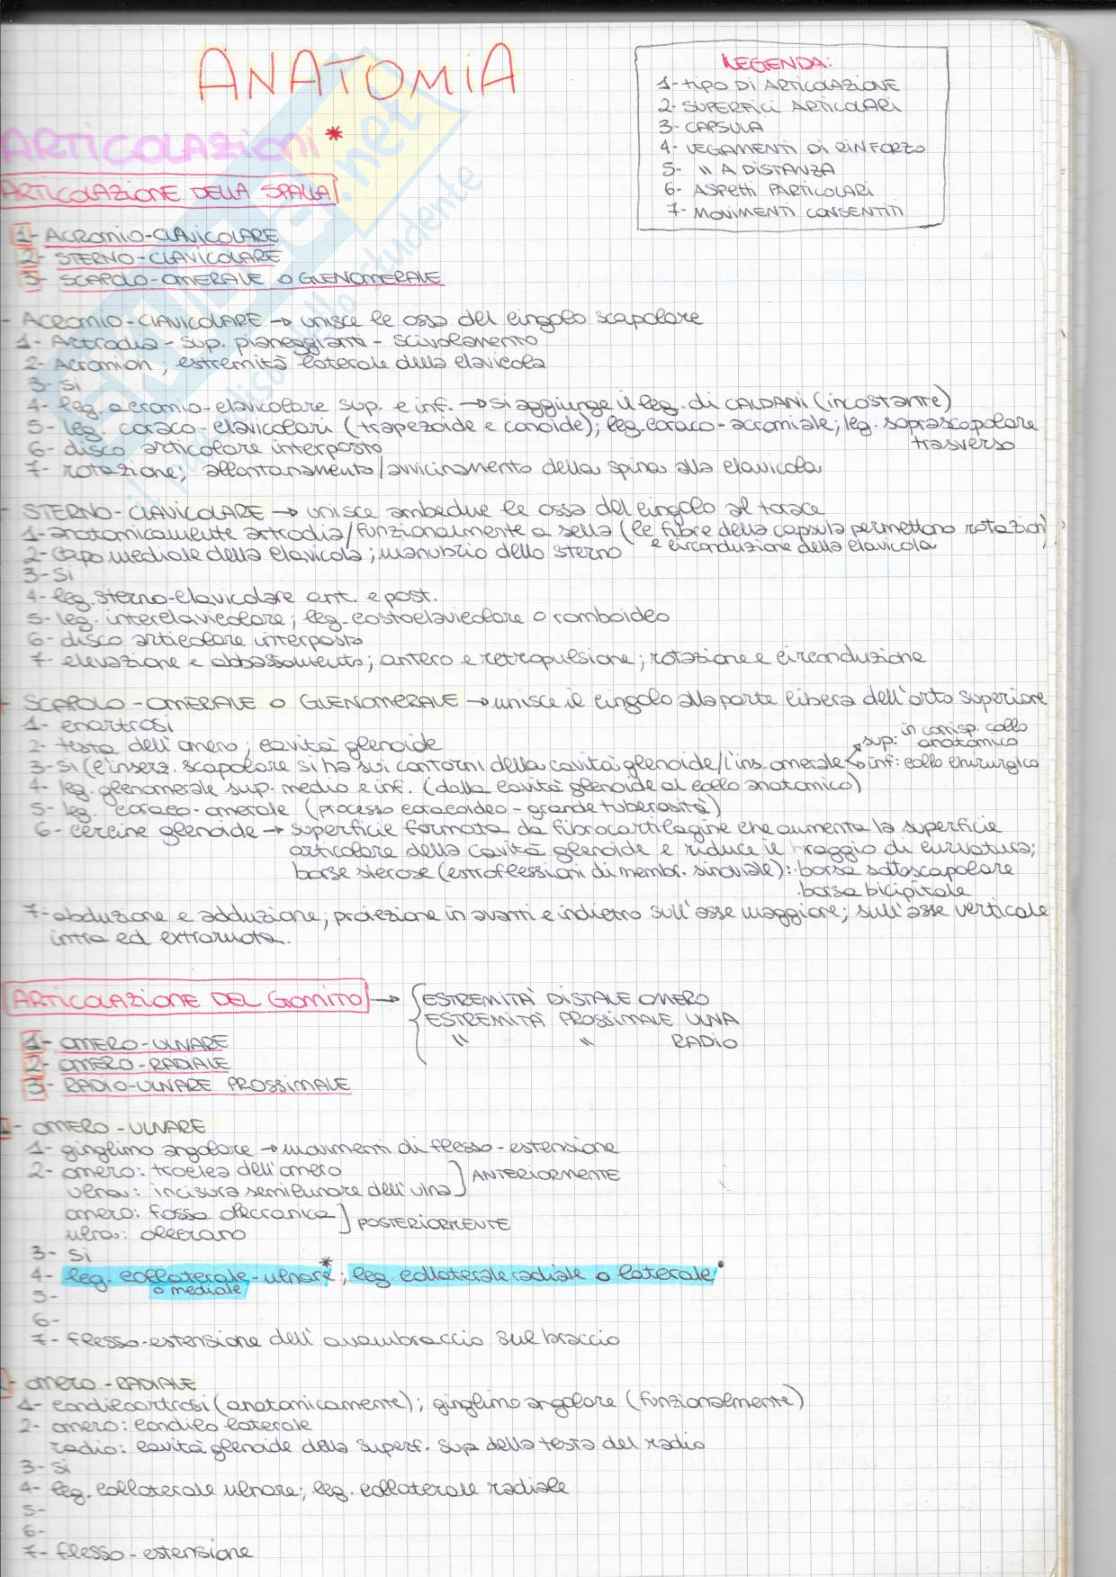 ANATOMIA
LEGENDA:
1- TIPO DI ARTICOLAZIONE
2- SUPERFICI ARTICOLARI
3- CAPSULA
4- LEGAMENTI DI RINFORZO
5- " A DISTANZA
6- ASPETTI PARTICOLARI
7- MOVIMENTI CONSENTITI
ARTICOLAZIONI *
ARTICOLAZIONE DELLA SPALLA
1- ACROMIO-CLAVICOLARE
2- STERNO-CLAVICOLARE
3- SCAPOLO-OMERALE O GLENOMERALE
- ACROMIO-CLAVICOLARE → unisce le ossa del cingolo scapolare
1- Artrodia - sup. pianeggianti - scivolamento
2- Acromion, estremità laterale della clavicola
3- si
4- leg. acromio-clavicolare sup. e inf. → si aggiunge il leg. di CALDANI (incostante)
5- leg. coraco-clavicolari (trapezoide e conoide); leg. coraco-acromiale; leg. soprascapolare trasverso
6- disco articolare interposto
7- rotazione; allontanamento/avvicinamento della spina alla clavicola
- STERNO-CLAVICOLARE → unisce ambedue le ossa del cingolo al torace
1- anatomicamente artrodia/funzionalmente a sella (le fibre della capsula permettono rotazioni
e circonduzione della clavicola
2- capo mediale della clavicola; manubrio dello sterno
3- Si
4- leg. sterno-clavicolare ant. e post.
5- leg. interclavicolare; leg. costoclavicolare o romboideo
6- disco articolare interposto
7- elevazione e abbassamento; antero e retropulsione; rotazione e circonduzione
- SCAPOLO-OMERALE O GLENOMERALE → unisce il cingolo alla parte libera dell'arto superiore
1- enartrosi
2- testa dell'omero; cavità glenoide
3- si (l'inserz. scapolare si ha sui contorni della cavità glenoide/l'ins. omerale sup: in corrisp. collo anatomico
inf: collo chirurgico
4- leg. glenomerale sup. medio e inf. (dalla cavità glenoide al collo anatomico)
5- leg. coraco-omerale (processo coracoideo - grande tuberosità)
6- cercine glenoide → superficie formata da fibrocartilagine che aumenta la superficie
articolare della cavità glenoide e riduce il raggio di curvatura;
borse sierose (estroflessioni di membr. sinoviale): · borsa sottoscapolare
· borsa bicipitale
7- abduzione e adduzione; proiezione in avanti e indietro sull'asse maggiore; sull'asse verticale
intra ed extraruota.
ARTICOLAZIONE DEL GOMITO → ESTREMITÀ DISTALE OMERO
ESTREMITÀ PROSSIMALE ULNA
" " RADIO
1- OMERO-ULNARE
2- OMERO-RADIALE
3- RADIO-ULNARE PROSSIMALE
1- OMERO-ULNARE
1- ginglimo angolare → movimenti di flesso-estensione
2- omero: troclea dell'omero
ulna: incisura semilunare dell'ulna ] ANTERIORMENTE
omero: fossa olecranica
ulna: olecrano ] POSTERIORMENTE
3- Si
4- leg. collaterale-ulnare*; leg. collaterale radiale o laterale•
o mediale
5-
6-
7- flesso-estensione dell'avambraccio sul braccio
- OMERO-RADIALE
1- condiloartrosi (anatomicamente); ginglimo angolare (funzionalmente)
2- omero: condilo laterale
radio: cavità glenoide della superf. sup. della testa del radio
3- Si
4- leg. collaterale ulnare; leg. collaterale radiale
5-
6-
7- flesso-estensione